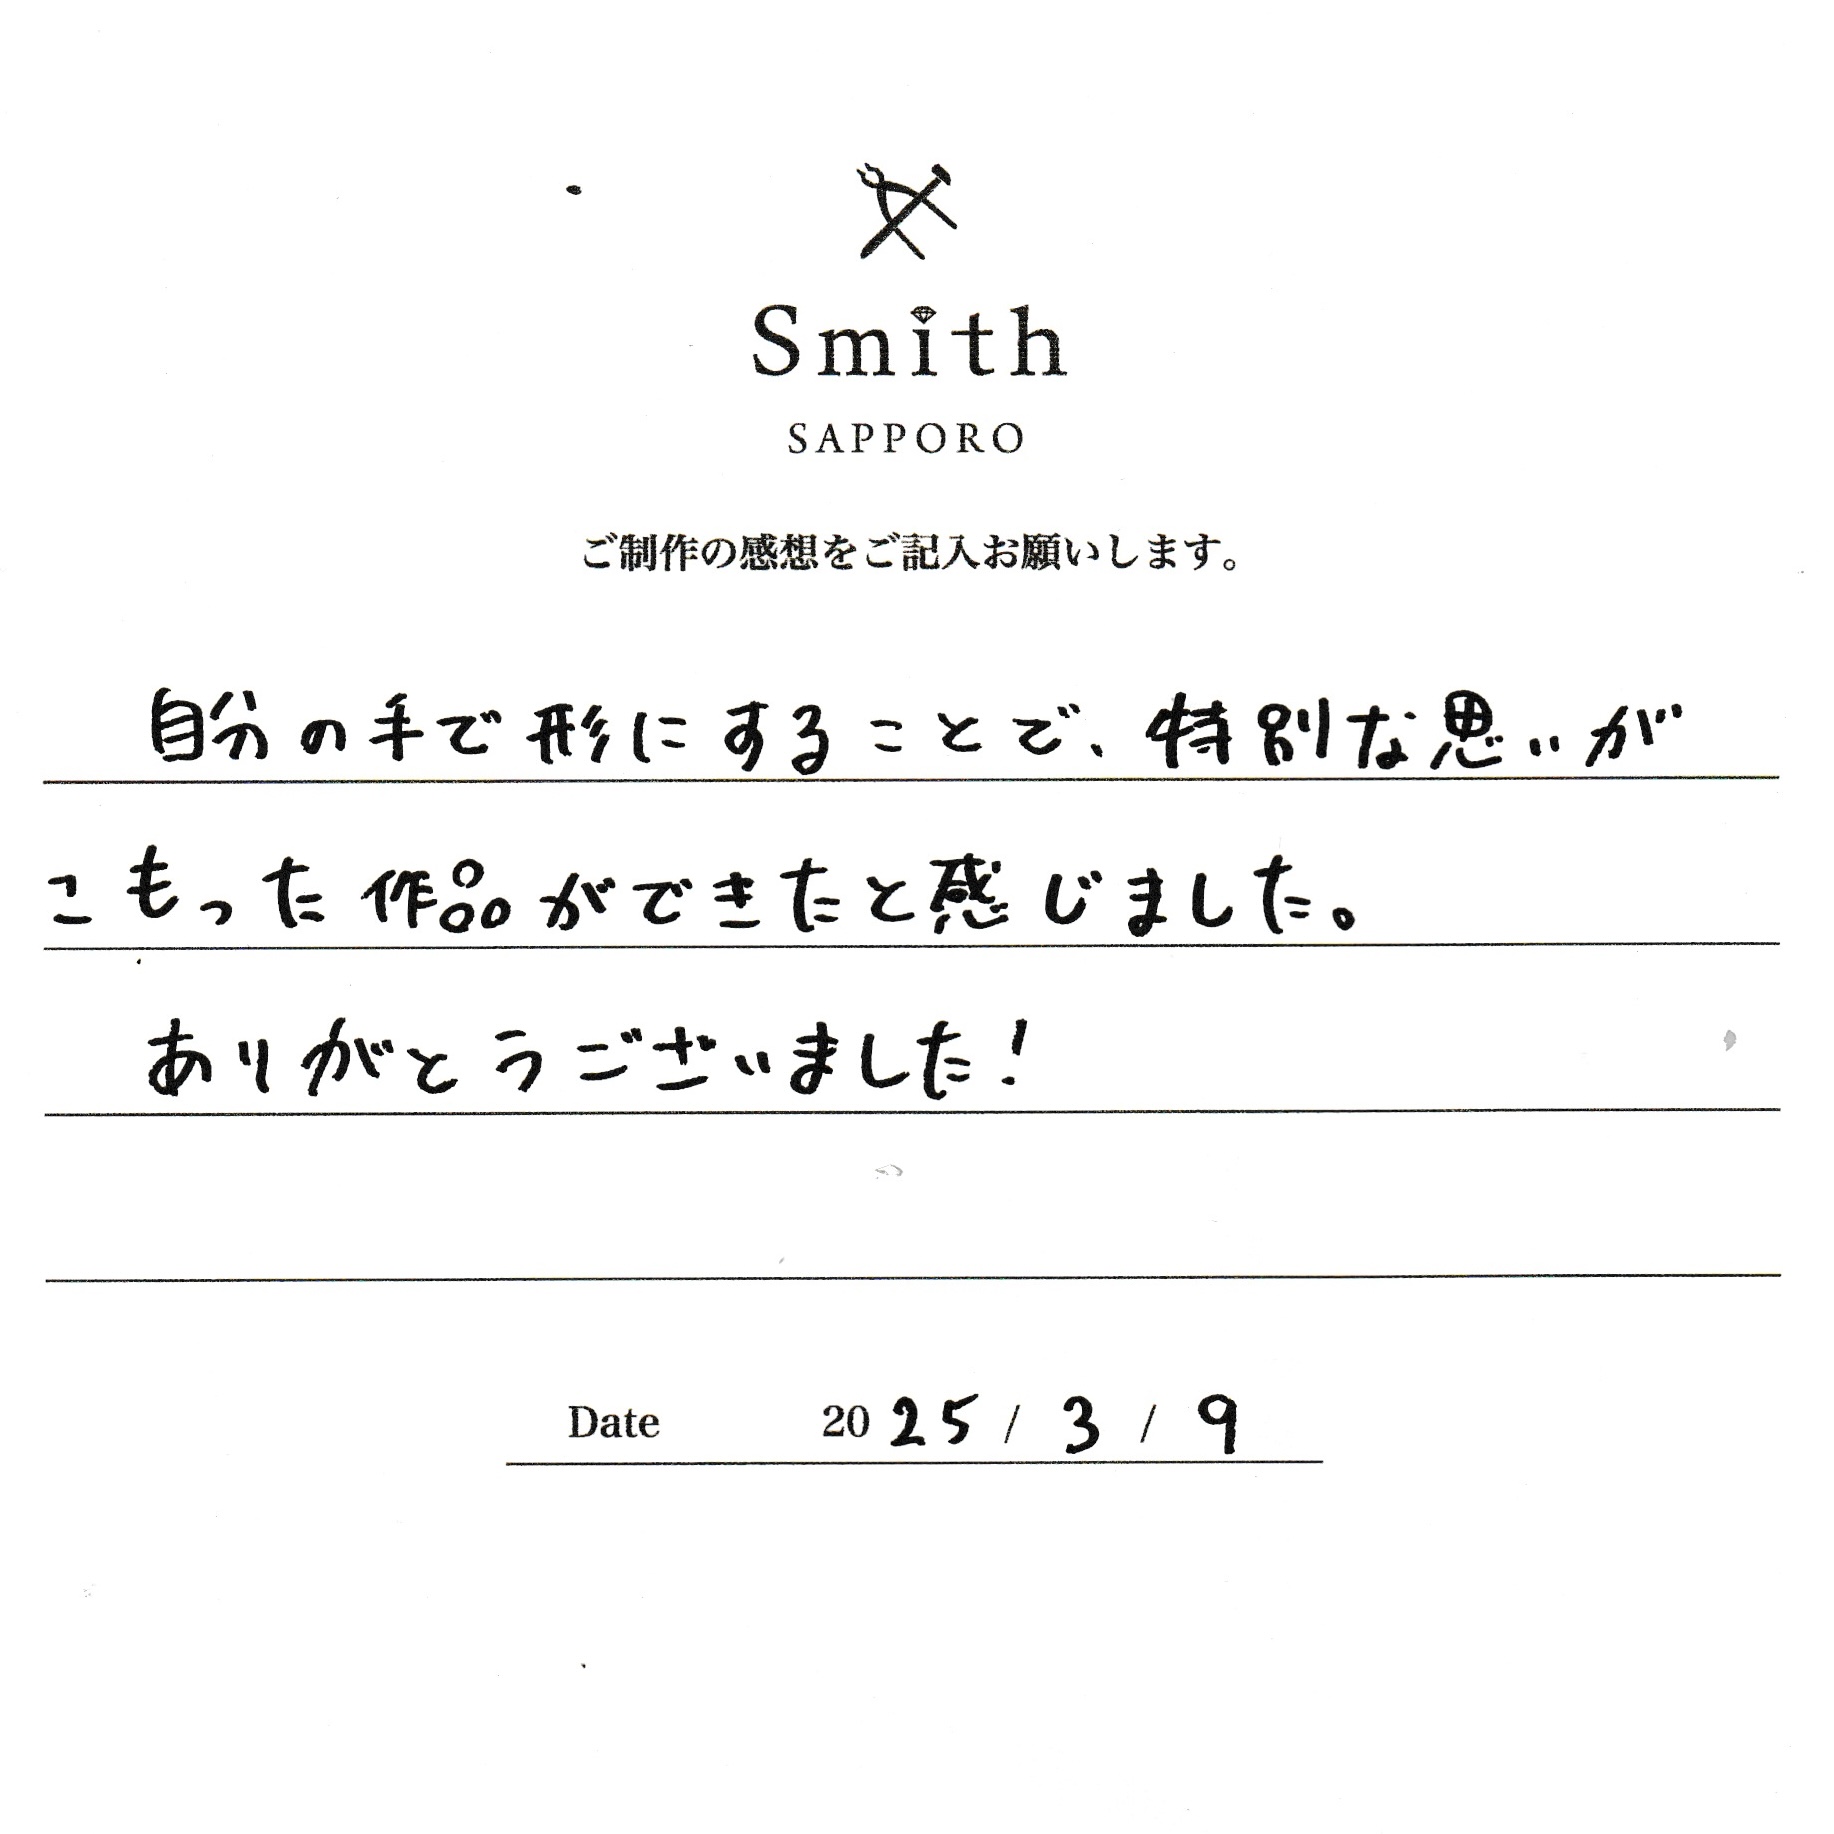 Smith
SAPPORO
ご制作の感想をご記入お願いします。
自分の手で形にすることで、特別な思いが
こもった作品ができたと感じました。
ありがとうございました!
Date 2025 / 3 / 9